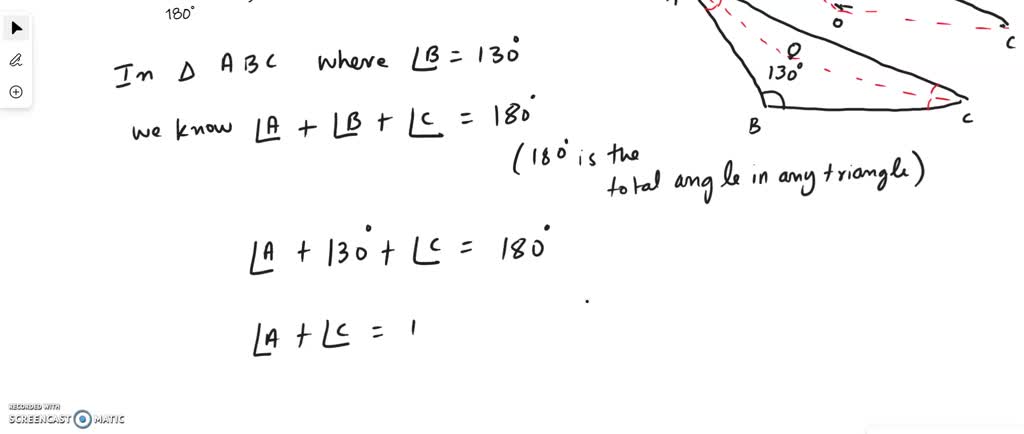 180°
In Δ ABC where ∠B = 130°
we know ∠A + ∠B + ∠C = 180°
(180° is the
total angle in any triangle)
∠A + 130° + ∠C = 180°
∠A + ∠C = 1
O
C
O
130°
B
C
RECORDED WITH
SCREENCAST MATIC